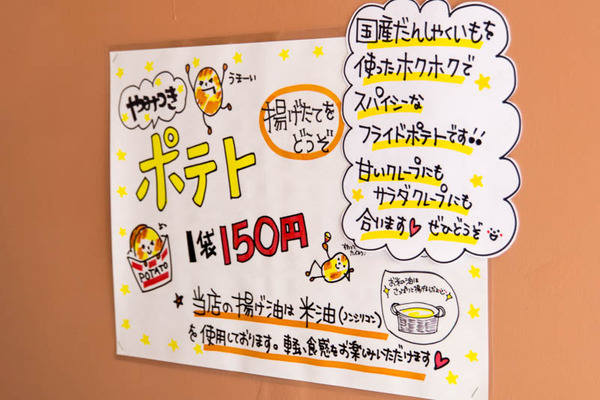 やみつき
うまーい
ポテト
揚げたてを
どうぞ
1袋150円
POTATO
当店の揚げ油は米油(ノンシリコン)
を使用しております。軽い食感をお楽しみいただけます♥
お米の油は
国産だんしゃくいもを
使ったホクホクで
スパイシーな
フライドポテトです!!
甘いクレープにも
サラダクレープにも
合います♥ ぜひどうぞ